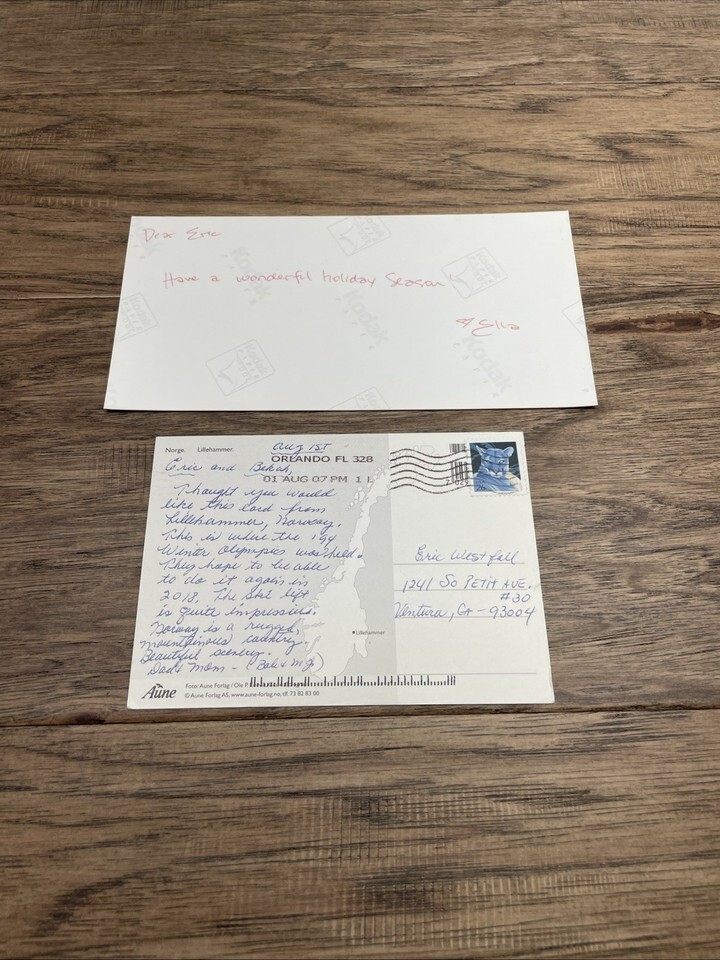 Dear Eric
Have a wonderful holiday Season!
Ella
kodak
kodak
kodak
kodak
Norge. Lillehammer.
Aug 1st
ORLANDO FL 328
01 AUG 07 PM 1 L
Eric and Bekah,
Thought you would
like this card from
Lillehammer, Norway.
This is where the '94
Winter Olympics was held.
They hope to be able
to do it again in
2018. The ski lift
is quite impressive.
Norway is a rugged,
mountainous country.
Beautiful scenery.
Dad & Mom - (Bob & M J)
Eric Westfall
1241 So PETIT AVE.
#30
Ventura, CA - 93004
Lillehammer
Aune
Foto: Aune Forlag / Ole P.
© Aune Forlag AS, www.aune-forlag.no, tlf. 73 82 83 00